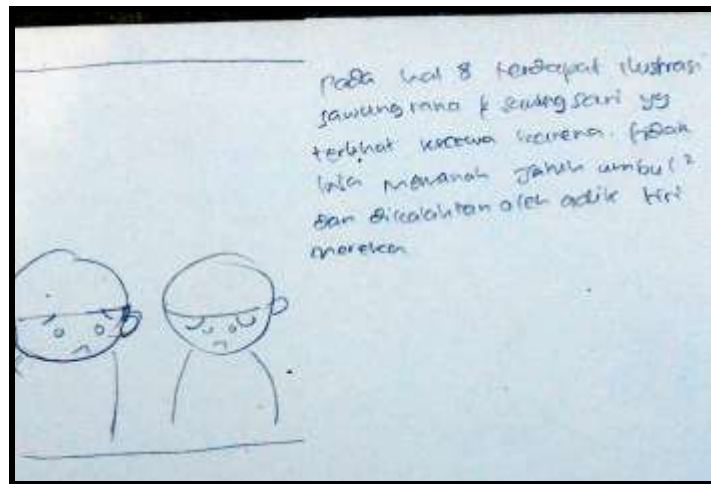 Pada hal 8 terdapat ilustrasi
sawung rana & sawung sari yg
terlihat kecewa karena tidak
bisa memanah umbul²
dan dikalahkan oleh adik tiri
mereka